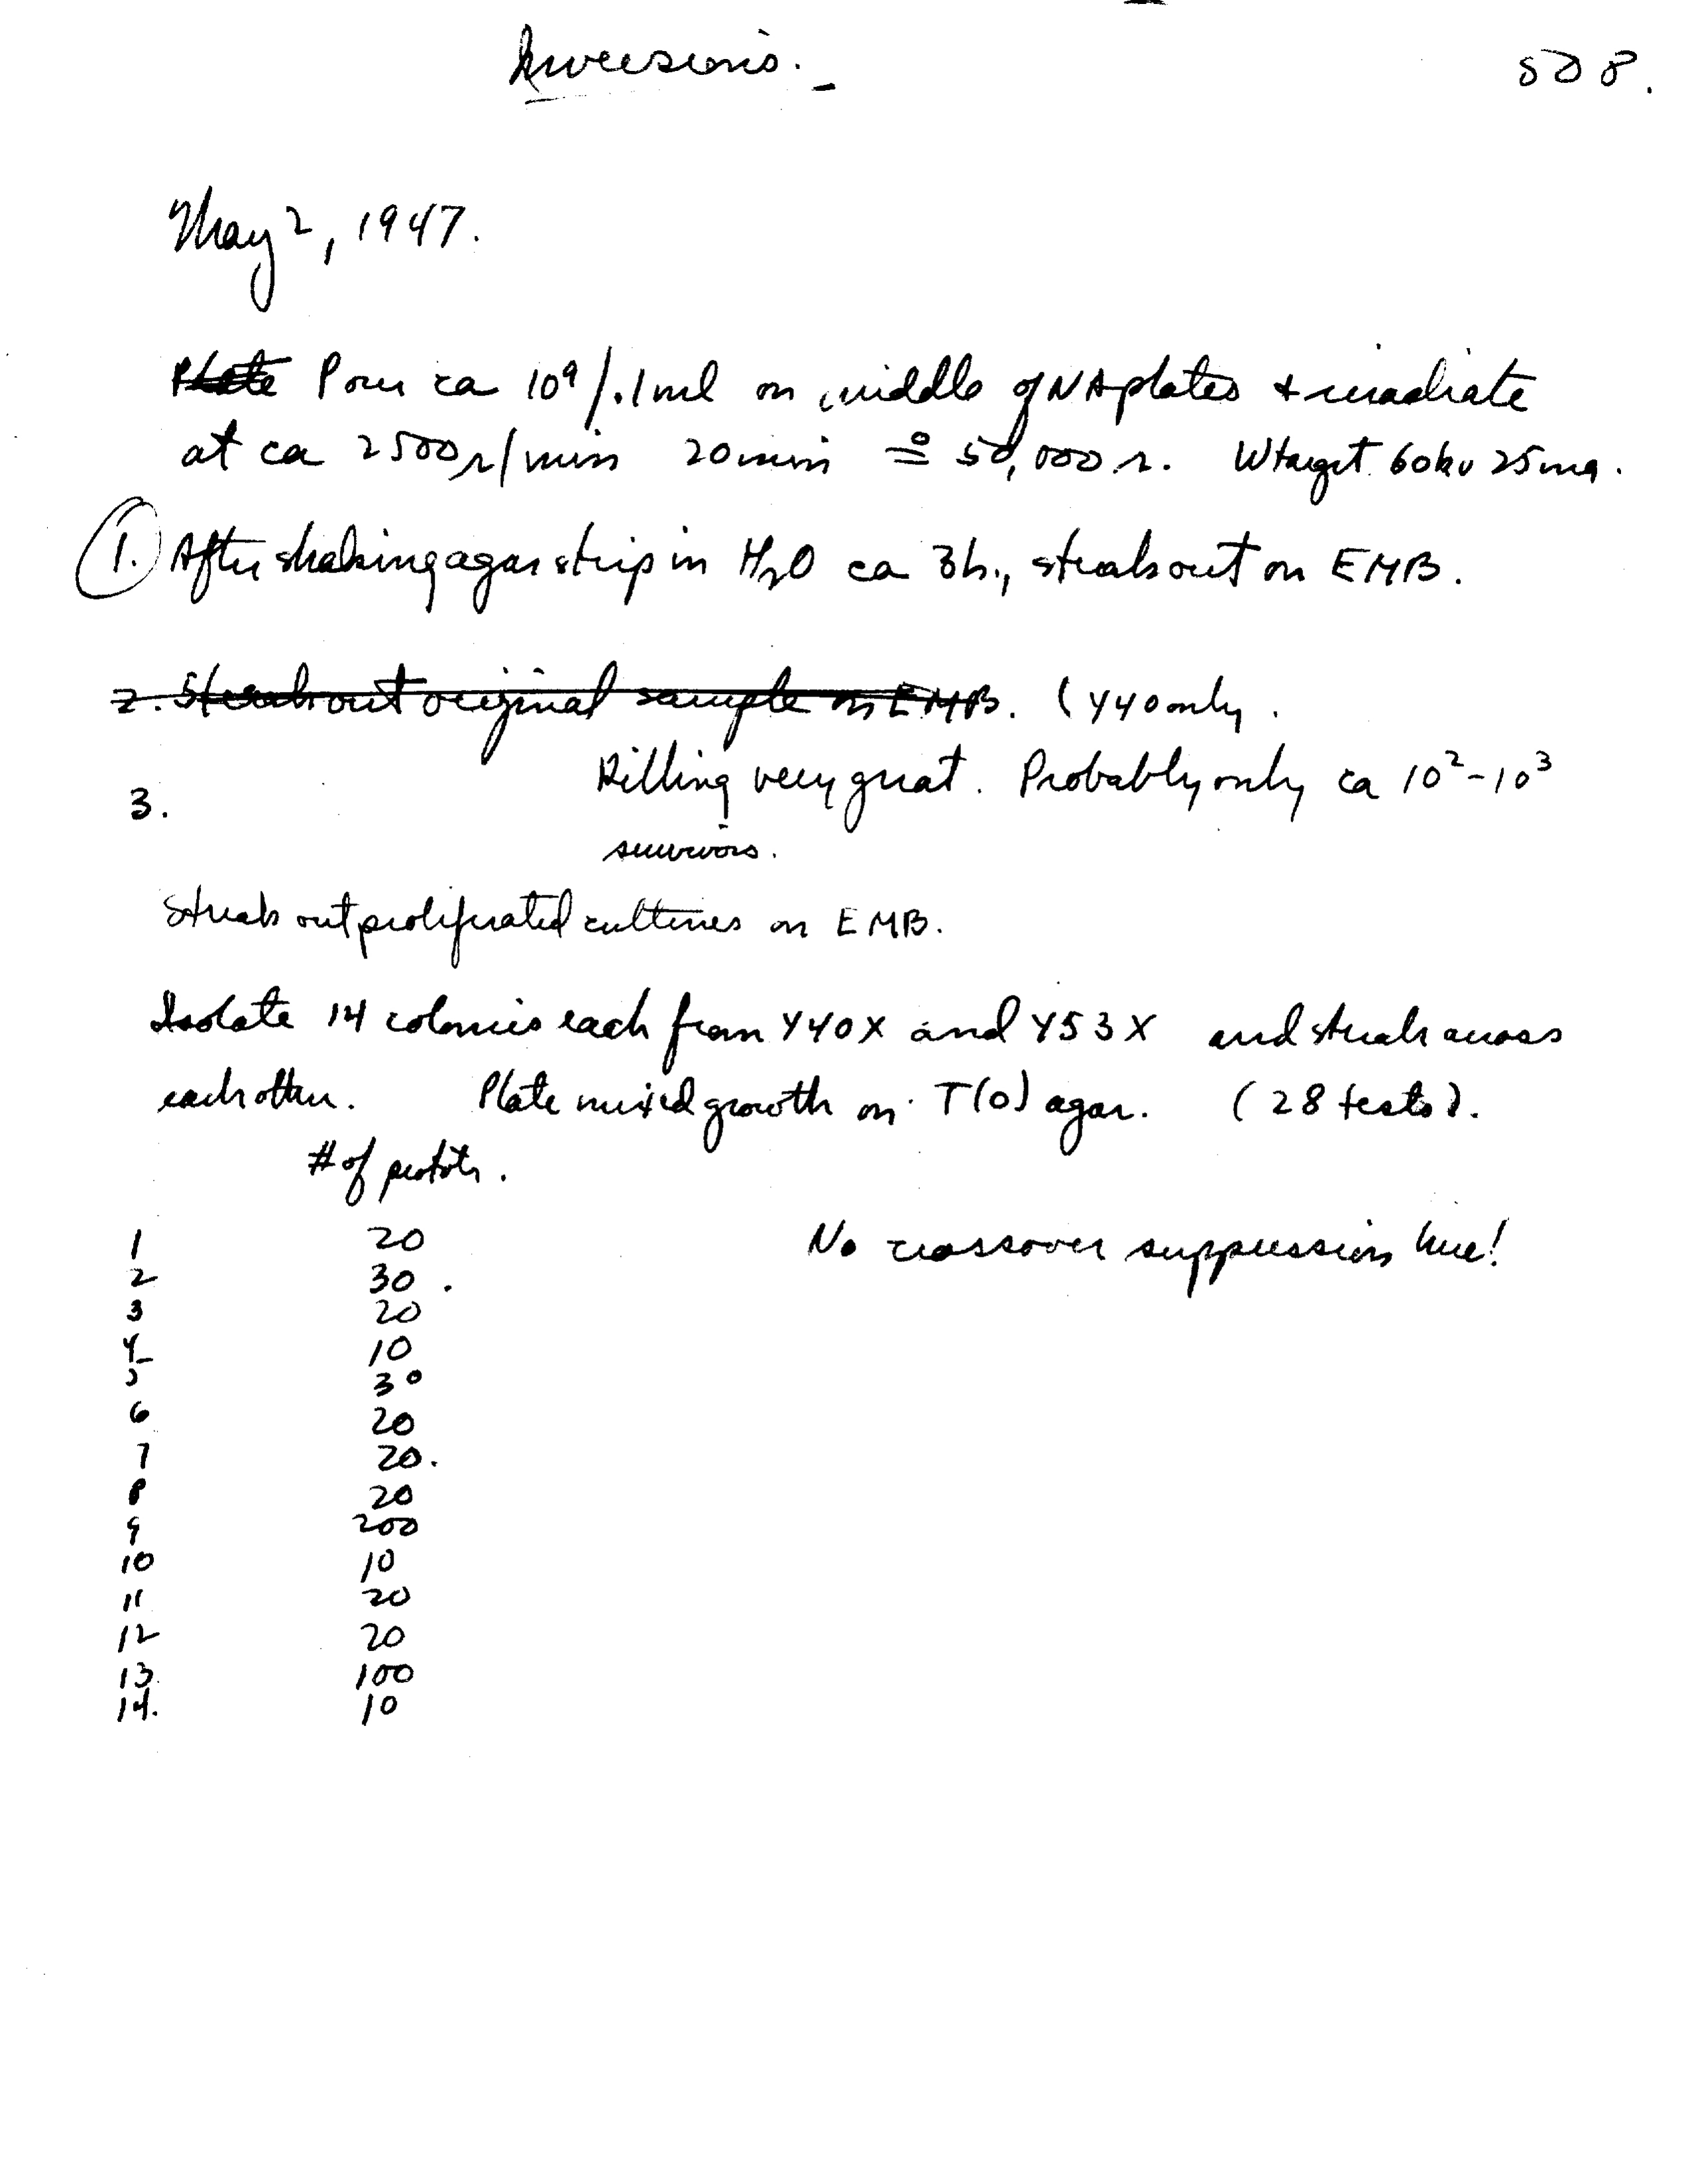 Inversions.
508.
May 2, 1947.
Plate Pour ca 10⁹/.1ml on middle of NA plates + irradiate
at ca 2500r/min 20min ≐ 50,000 r. W target 60kv 25ma.
1. After shaking agar strip in H₂O ca 3h., streak out on EMB.
2. Streak out original sample on EMB. (Y40 only.
Killing very great. Probably only ca 10²-10³
3.
survivors.
Streak out proliferated cultures on EMB.
Isolate 14 colonies each from Y40X and Y53X and streak across
each other. Plate mixed growth on T(0) agar. (28 tests).
# of protots.
1 20 No crossover suppression here!
2 30.
3 20
4 10
5 30
6 20
7 20.
8 20
9 200
10 10
11 20
12 20
13. 100
14. 10